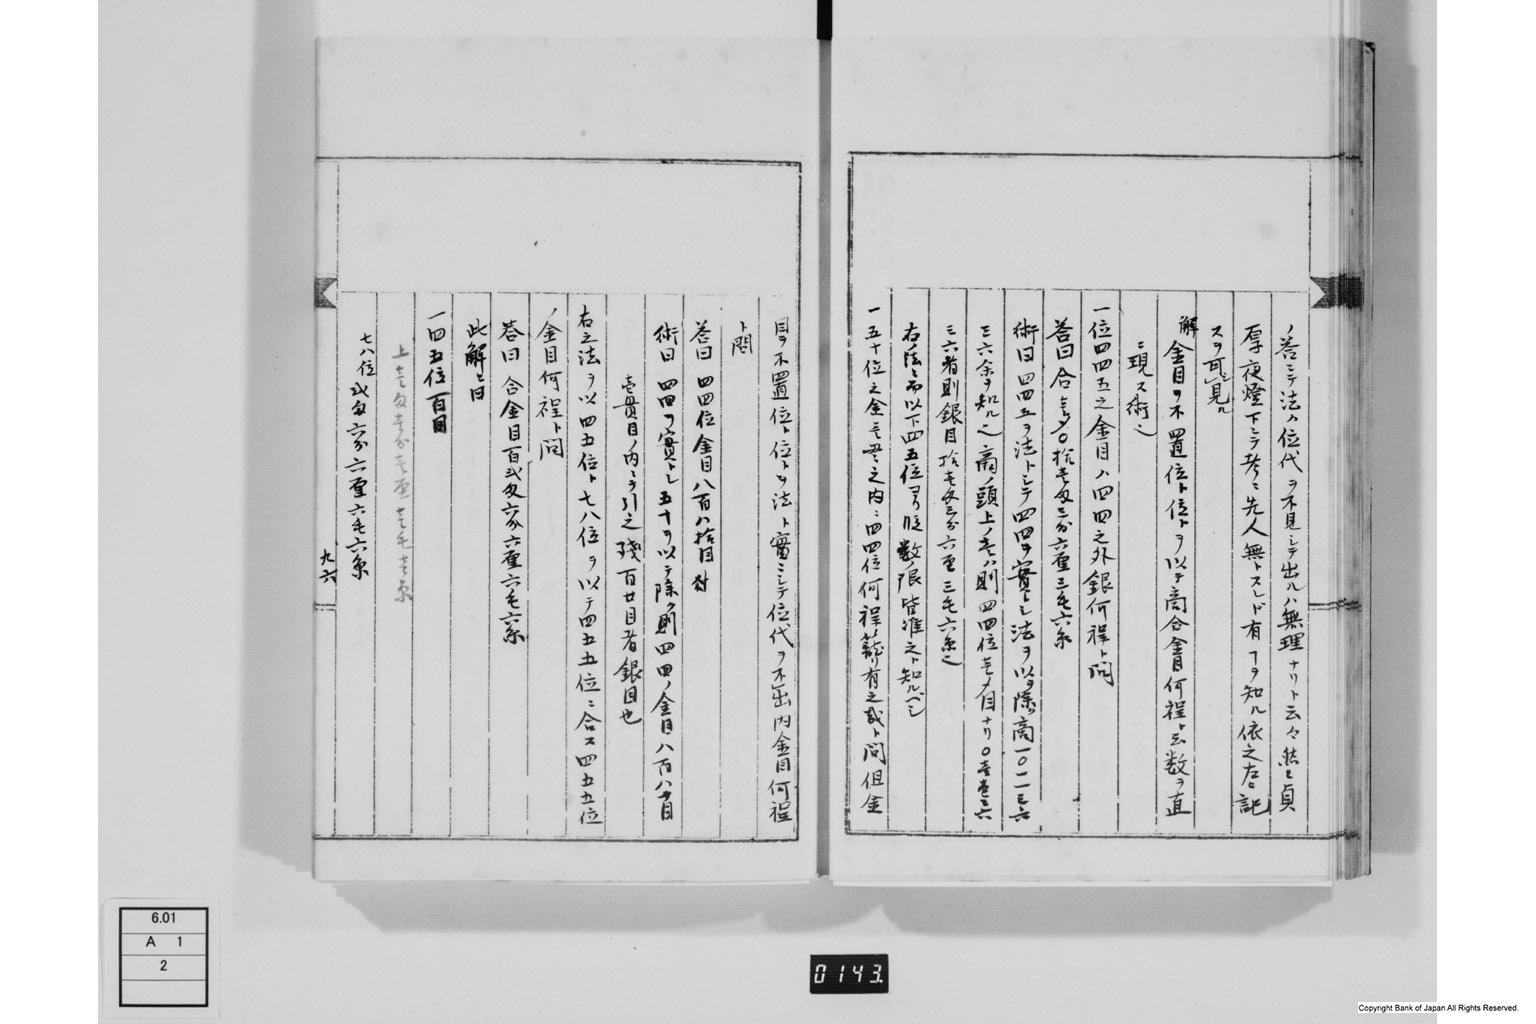 ノ答ニテ法ハ位代ヲ不見シテ出ルハ無理ナリト云々然ト貞
厚夜燈下ニテ考ニ先人無トスレド有ヿヲ知ル依之左ニ記
スヲ可見ル
解金目ヲ不置位ト位トヲ以テ商合金目何程ト云数ヲ直
ニ現ス術ニ
一位四四五之金目ハ四四之外銀何程ト問
答曰合〇拾壱匁三分六厘三毛六糸
術曰四四五ヲ法トシテ四四ヲ實トシ法ヲ以テ除商一〇一一三六
三六余ヲ知ル之商ノ頭上ノ壱ハ則四四位壱〆目ナリ〇壱壱三六
三六者則銀目拾壱匁三分六厘三毛六糸之
右ノ法ニ而以下四五位ヨリ段数ノ限皆准之ト知ルベシ
一五十位之金壱〆目之内ニ四四位何程籠リ有之哉ト問但金
目ヲ不置位ト位トヲ法ト實ニシテ位代ヲ不出内金目何程
ト問
答曰四四位金目八百八拾目
術曰四四ヲ實トシ五十ヲ以テ除ク則四四ノ金目八百八十目
壱貫目ノ内ニテ引之残百廿目者銀目也
右之法ヲ以四五位ト七八位ヲ以テ四五五位ニ合ス四五五位
ノ金目何程ト問
答曰合金目百弐匁六分六厘六毛六糸
此解ニ曰
一四五位百目
上壱匁壱分壱厘壱毛壱糸
七八位弐匁六分六厘六毛六糸
九六
6.01
A 1
2
0143.
Copyright Bank of Japan All Rights Reserved.